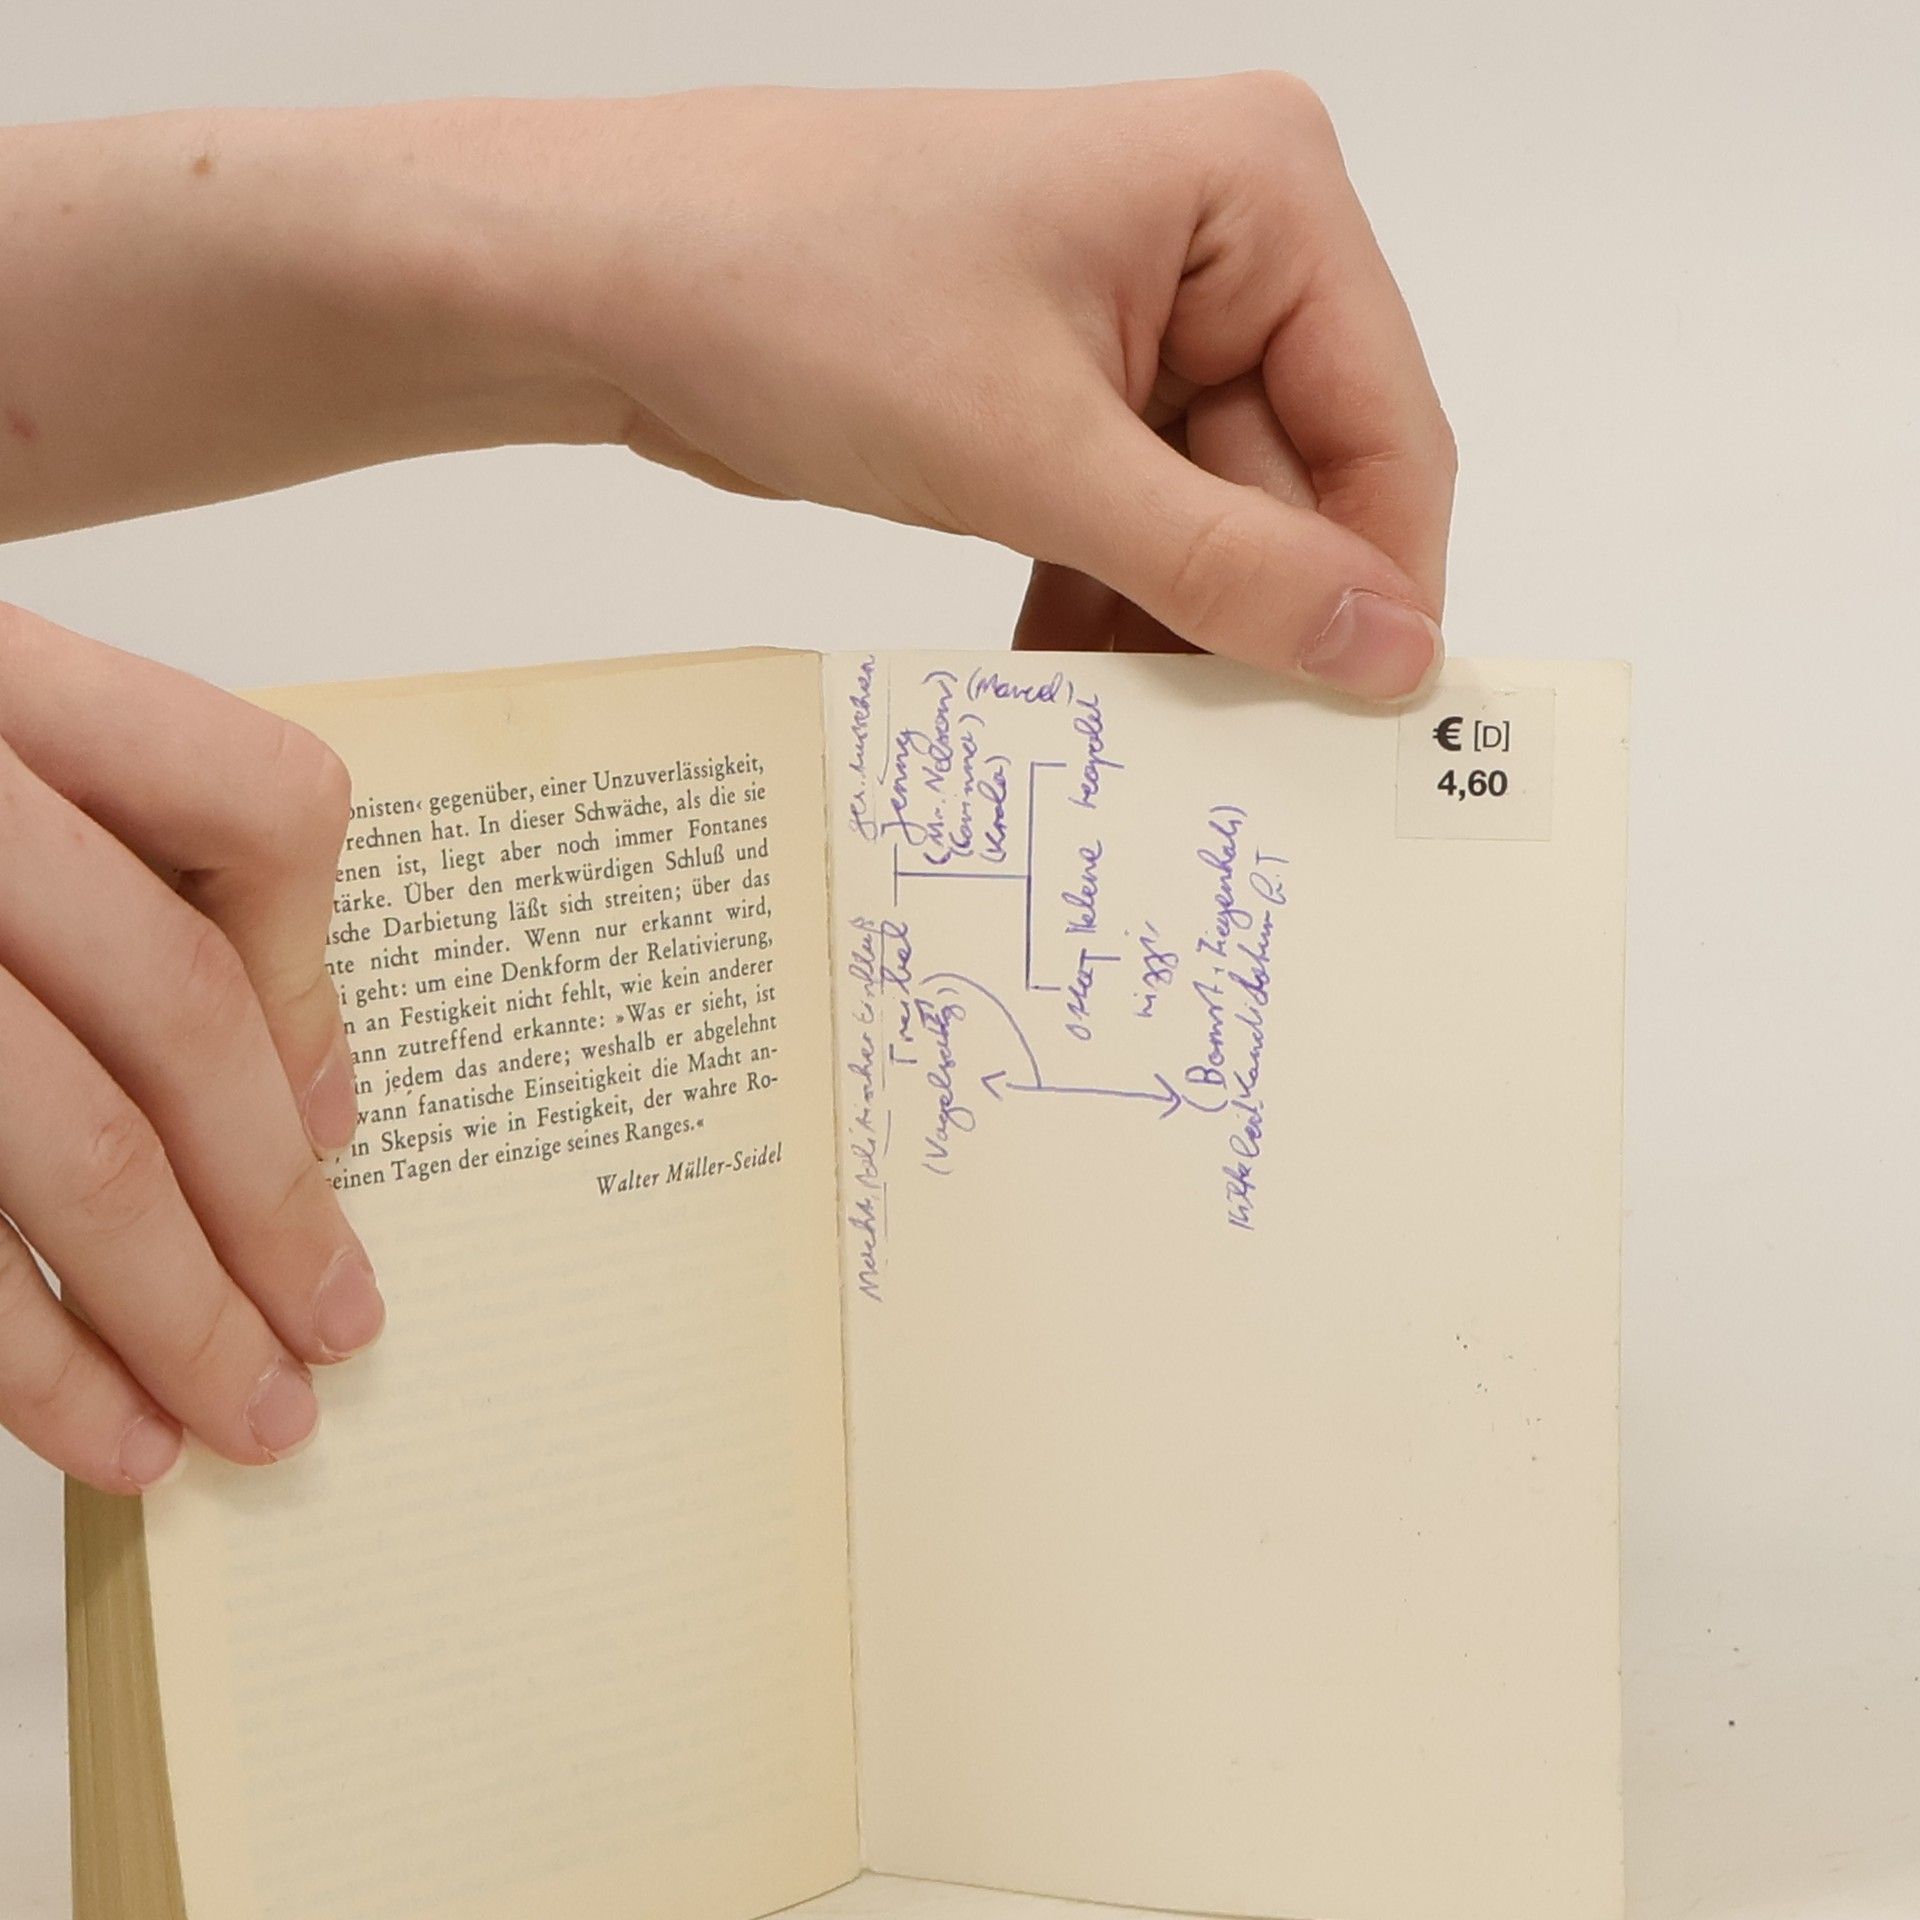 onisten‹ gegenüber, einer Unzuverlässigkeit,
rechnen hat. In dieser Schwäche, als die sie
enen ist, liegt aber noch immer Fontanes
tärke. Über den merkwürdigen Schluß und
ische Darbietung läßt sich streiten; über das
nte nicht minder. Wenn nur erkannt wird,
i geht: um eine Denkform der Relativierung,
n an Festigkeit nicht fehlt, wie kein anderer
ann zutreffend erkannte: »Was er sieht, ist
in jedem das andere; weshalb er abgelehnt
wann fanatische Einseitigkeit die Macht an-
, in Skepsis wie in Festigkeit, der wahre Ro-
einen Tagen der einzige seines Ranges.«
Walter Müller-Seidel
Macht, politischer Einfluß ges. Aussehen
Treibel Jenny
(Vogelsang) (Mr. Nelson)
(Corinna) (Marcel)
(Krola)
Otto Helene Leopold
Lizzi
(Bomst, Ziegenhals)
€ [D]
4,60